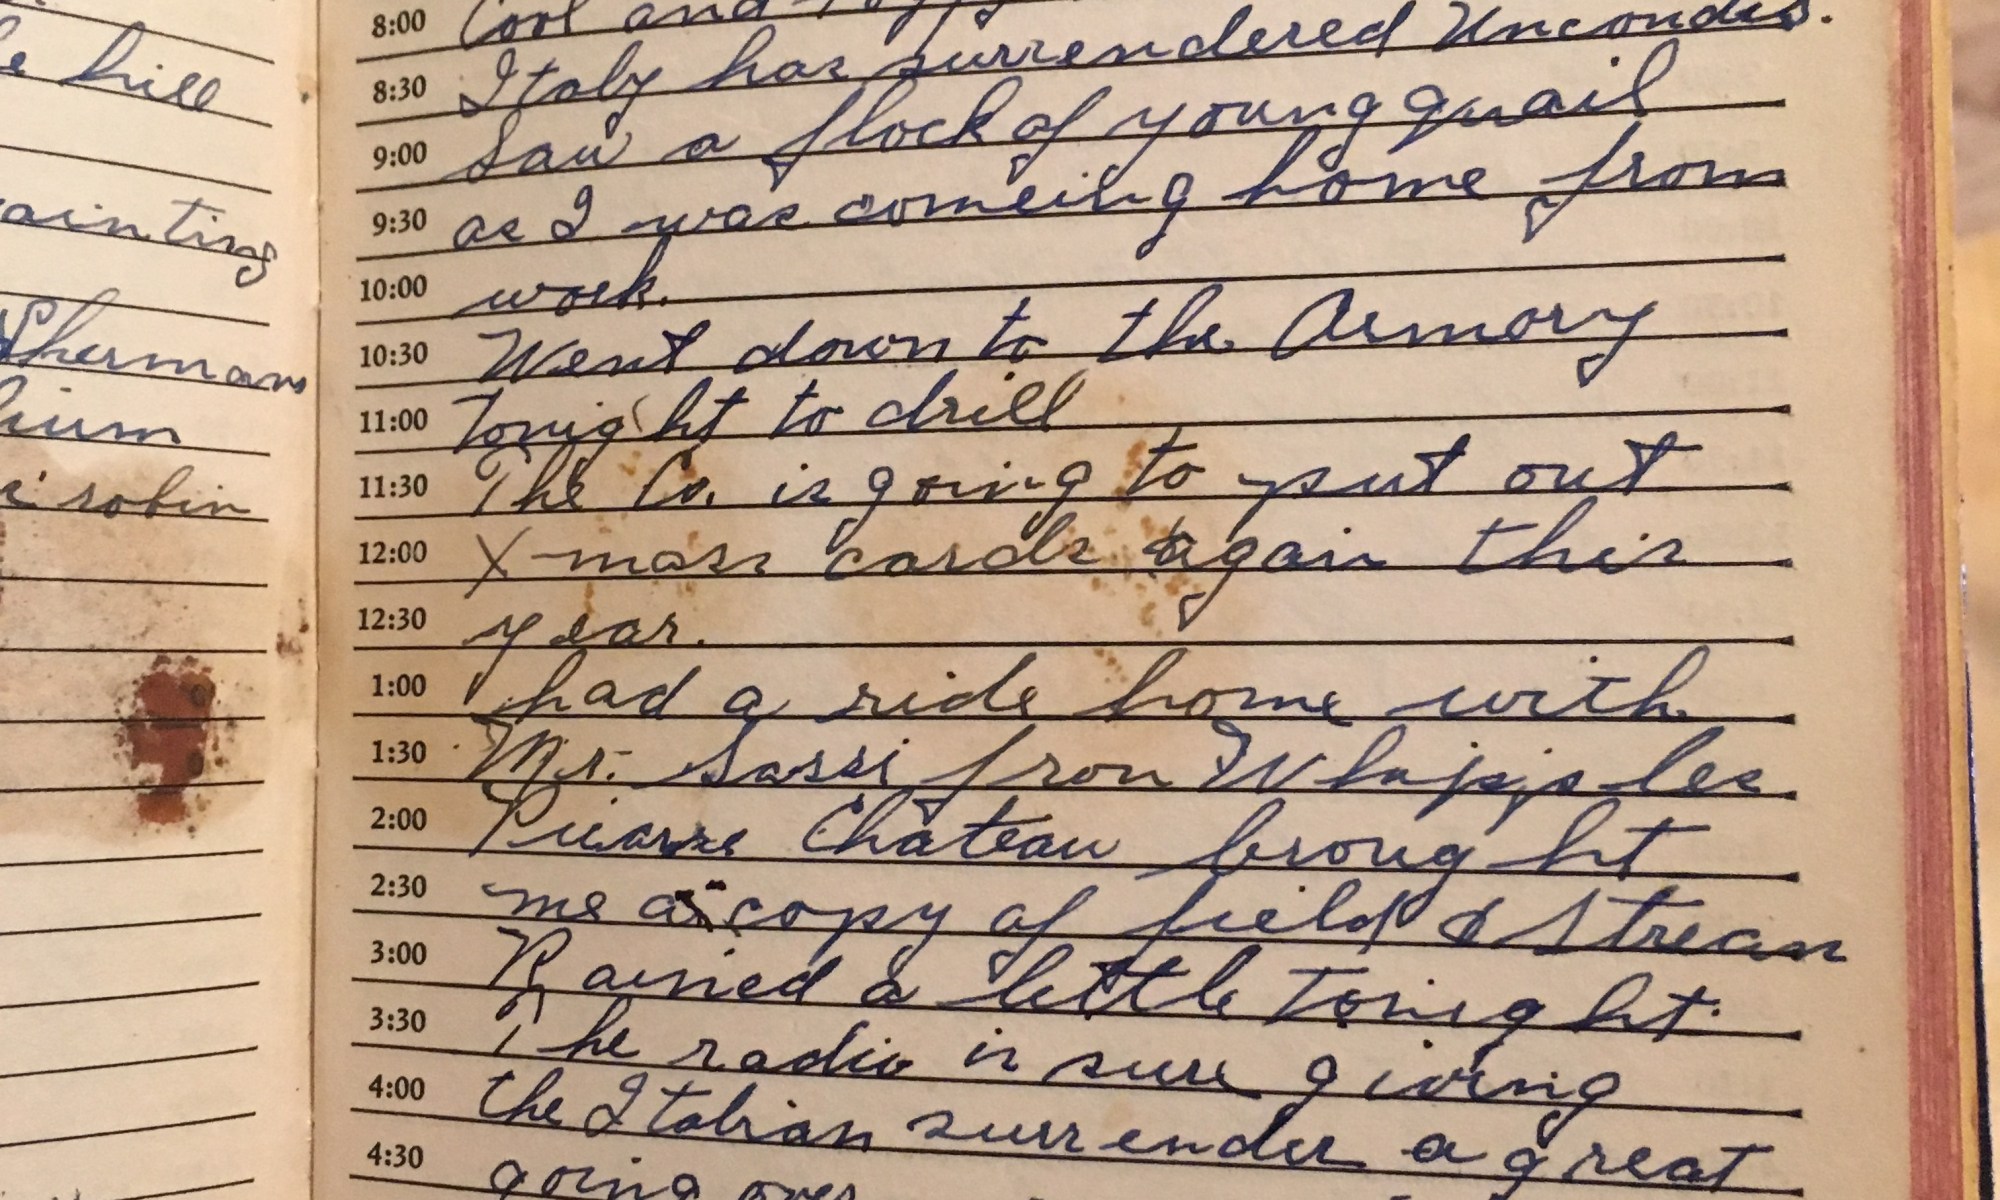 e hill
ainting
Sherman
lium
robin
8:00 Cool and
8:30 Italy has surrendered Uncondis.
9:00 Saw a flock of young quail
9:30 as I was comeing home from
10:00 work.
10:30 Went down to the Armory
11:00 Tonight to drill
11:30 The Co. is going to put out
12:00 X-mass cards again this
12:30 year.
1:00 had a ride home with
1:30 Mr. Sassi from Whipples
2:00 Piearre Chateau brought
2:30 me a copy of field & Stream
3:00 Rained a little Tonight.
3:30 The radio is sure giving
4:00 the Italian surrender a great
4:30 going over